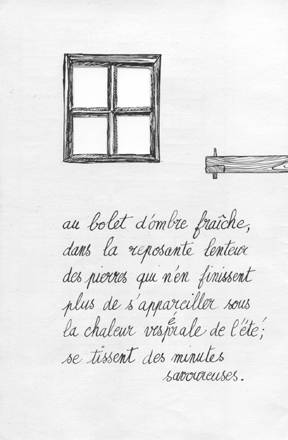 au bolet d'ombre fraîche,
dans la reposante lenteur
des pierres qui n'en finissent
plus de s'appareiller sous
la chaleur vespérale de l'été;
se tissent des minutes
savoureuses.